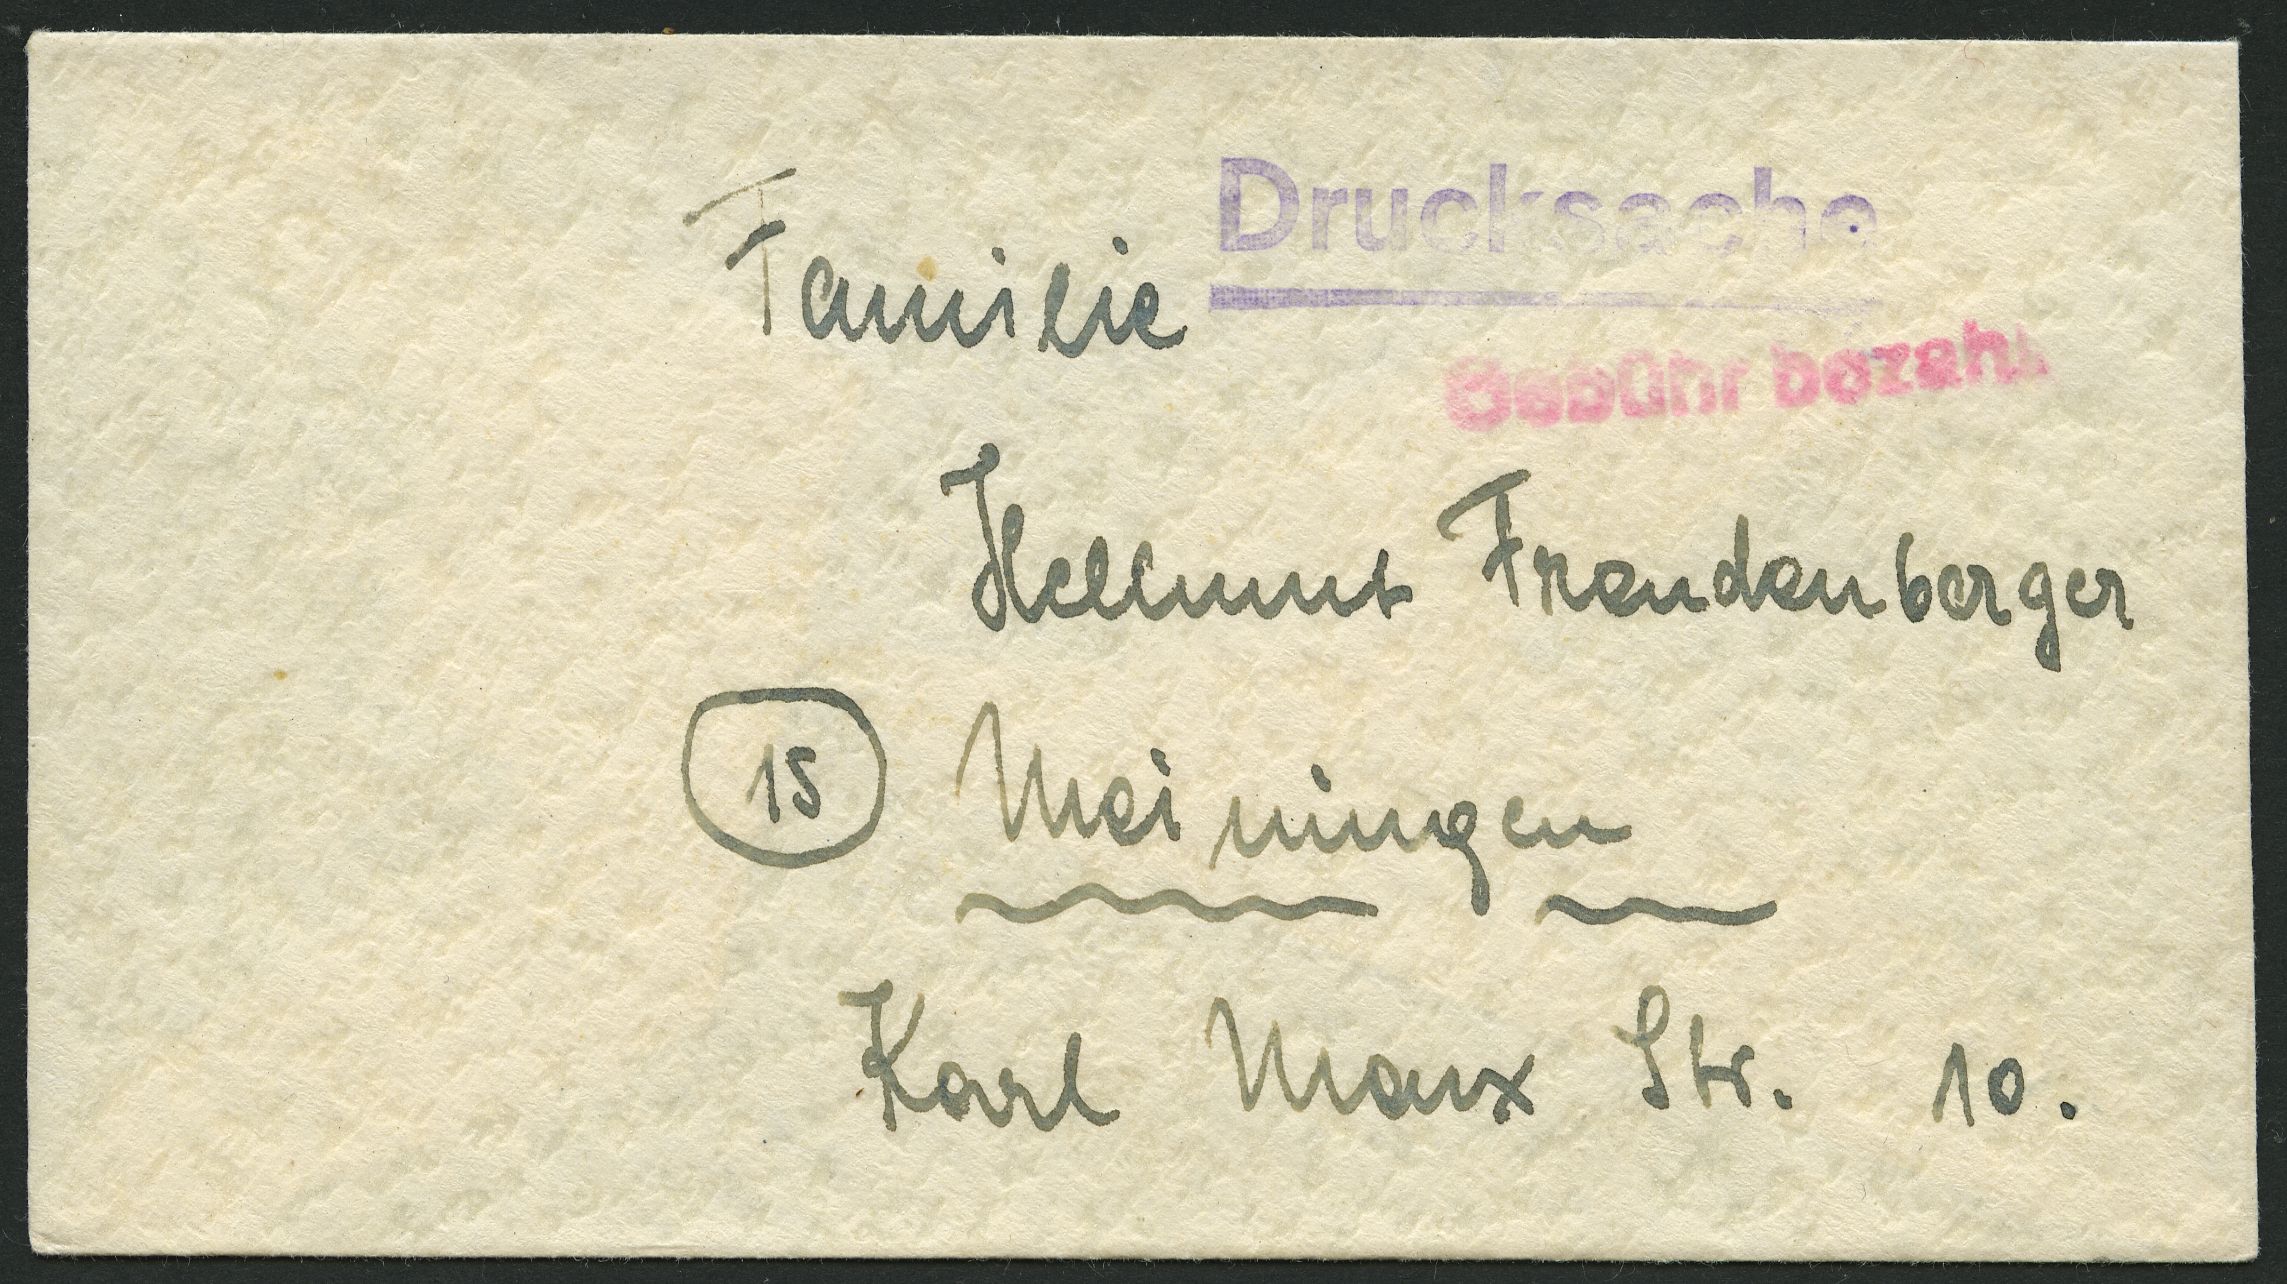 Drucksache
Familie
Gebühr bezahlt
Hellmut Freudenberger
15 Meiningen
Karl Marx Str. 10.